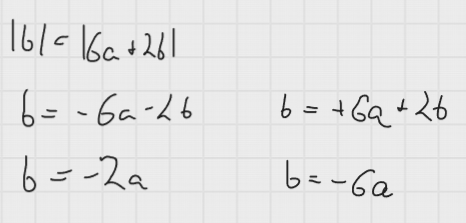 |b| = |6a + 2b|
b = -6a - 2b
b = +6a + 2b
b = -2a
b = -6a